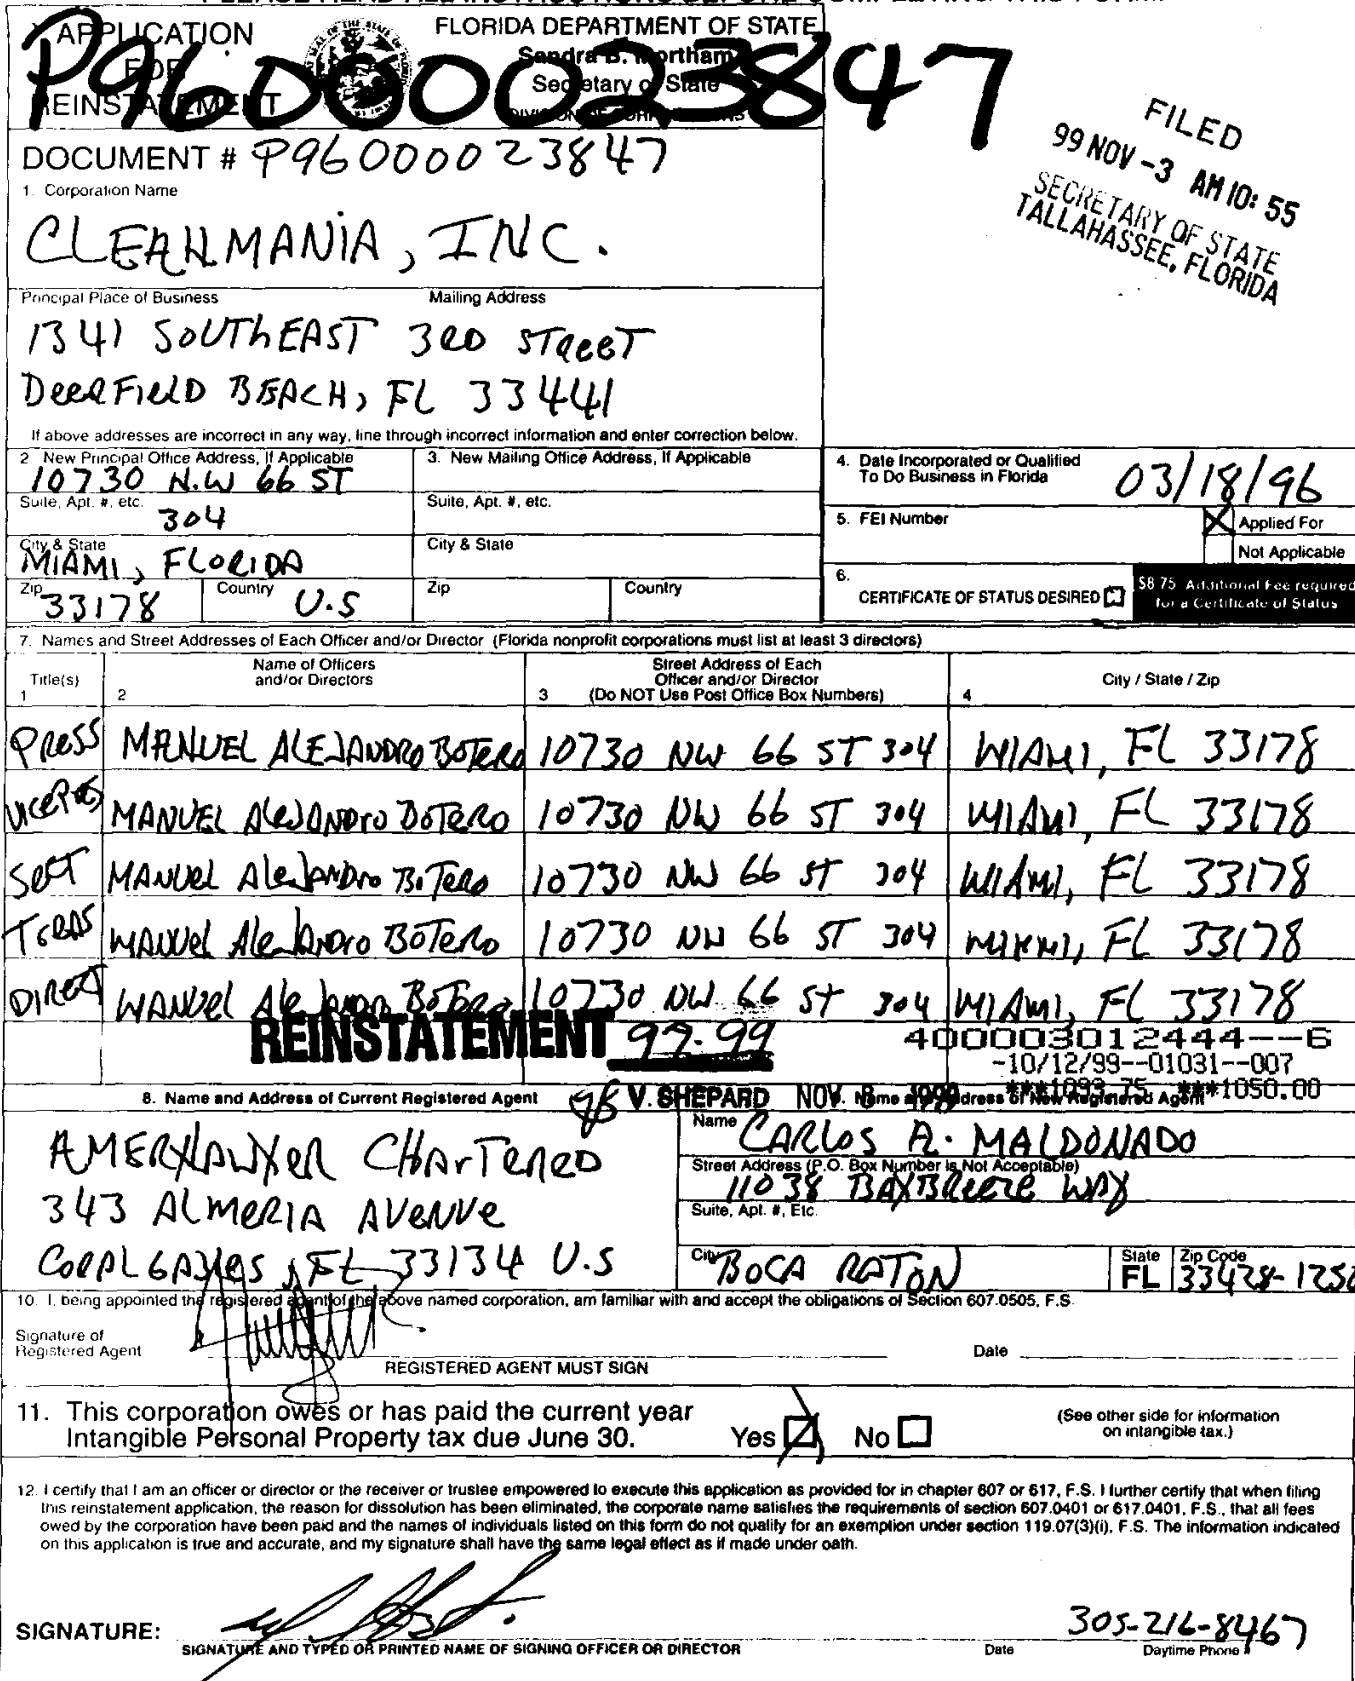 APPLICATION
FOR
REINSTATEMENT
FLORIDA DEPARTMENT OF STATE
Sandra B. Mortham
Secretary of State
DIVISION OF CORPORATIONS
P96000023847
FILED
99 NOV -3 AM 10: 55
SECRETARY OF STATE
TALLAHASSEE, FLORIDA
DOCUMENT # P96000023847
1. Corporation Name
CLEANMANIA, INC.
Principal Place of Business Mailing Address
1341 SOUTHEAST 3RD STREET
DEERFIELD BEACH, FL 33441
If above addresses are incorrect in any way, line through incorrect information and enter correction below.
2 New Principal Office Address, If Applicable
10730 N.W 66 ST
Suite, Apt. #, etc.
304
City & State
MIAMI, FLORIDA
Zip 33178 Country U.S
3. New Mailing Office Address, If Applicable
Suite, Apt. #, etc.
City & State
Zip Country
4. Date Incorporated or Qualified
To Do Business in Florida 03/18/96
5. FEI Number X Applied For
Not Applicable
6.
CERTIFICATE OF STATUS DESIRED
$8.75 Additional Fee required
for a Certificate of Status
7. Names and Street Addresses of Each Officer and/or Director (Florida nonprofit corporations must list at least 3 directors)
Title(s)
1
Name of Officers
and/or Directors
2
Street Address of Each
Officer and/or Director
3 (Do NOT Use Post Office Box Numbers)
City / State / Zip
4
PRESS MANUEL ALEJANDRO BOTERO 10730 NW 66 ST 304 MIAMI, FL 33178
VICEPRES MANUEL ALEJANDRO BOTERO 10730 NW 66 ST 304 MIAMI, FL 33178
SECT MANUEL ALEJANDRO BOTERO 10730 NW 66 ST 304 MIAMI, FL 33178
TREAS MANUEL ALEJANDRO BOTERO 10730 NW 66 ST 304 MIAMI, FL 33178
DIRECT MANUEL ALEJANDRO BOTERO 10730 NW 66 ST 304 MIAMI, FL 33178
REINSTATEMENT 97-99
400003012444--6
-10/12/99--01031--007
***1093.75 ***1050.00
V. SHEPARD NOV. 8 1999
8. Name and Address of Current Registered Agent
AMERILAWYER CHARTERED
343 ALMERIA AVENUE
CORAL GABLES, FL 33134 U.S
Name and Address of New Registered Agent
Name CARLOS A. MALDONADO
Street Address (P.O. Box Number Is Not Acceptable)
11038 BAYBREEZE WAY
Suite, Apt. #, Etc.
City BOCA RATON State FL Zip Code 33428-1252
10. I, being appointed the registered agent of the above named corporation, am familiar with and accept the obligations of Section 607.0505, F.S.
Signature of
Registered Agent
REGISTERED AGENT MUST SIGN
Date
11. This corporation owes or has paid the current year
Intangible Personal Property tax due June 30. Yes No
(See other side for information
on intangible tax.)
12. I certify that I am an officer or director or the receiver or trustee empowered to execute this application as provided for in chapter 607 or 617, F.S. I further certify that when filing
this reinstatement application, the reason for dissolution has been eliminated, the corporate name satisfies the requirements of section 607.0401 or 617.0401, F.S., that all fees
owed by the corporation have been paid and the names of individuals listed on this form do not qualify for an exemption under section 119.07(3)(i), F.S. The information indicated
on this application is true and accurate, and my signature shall have the same legal effect as if made under oath.
SIGNATURE:
SIGNATURE AND TYPED OR PRINTED NAME OF SIGNING OFFICER OR DIRECTOR
Date
305-216-8467
Daytime Phone #